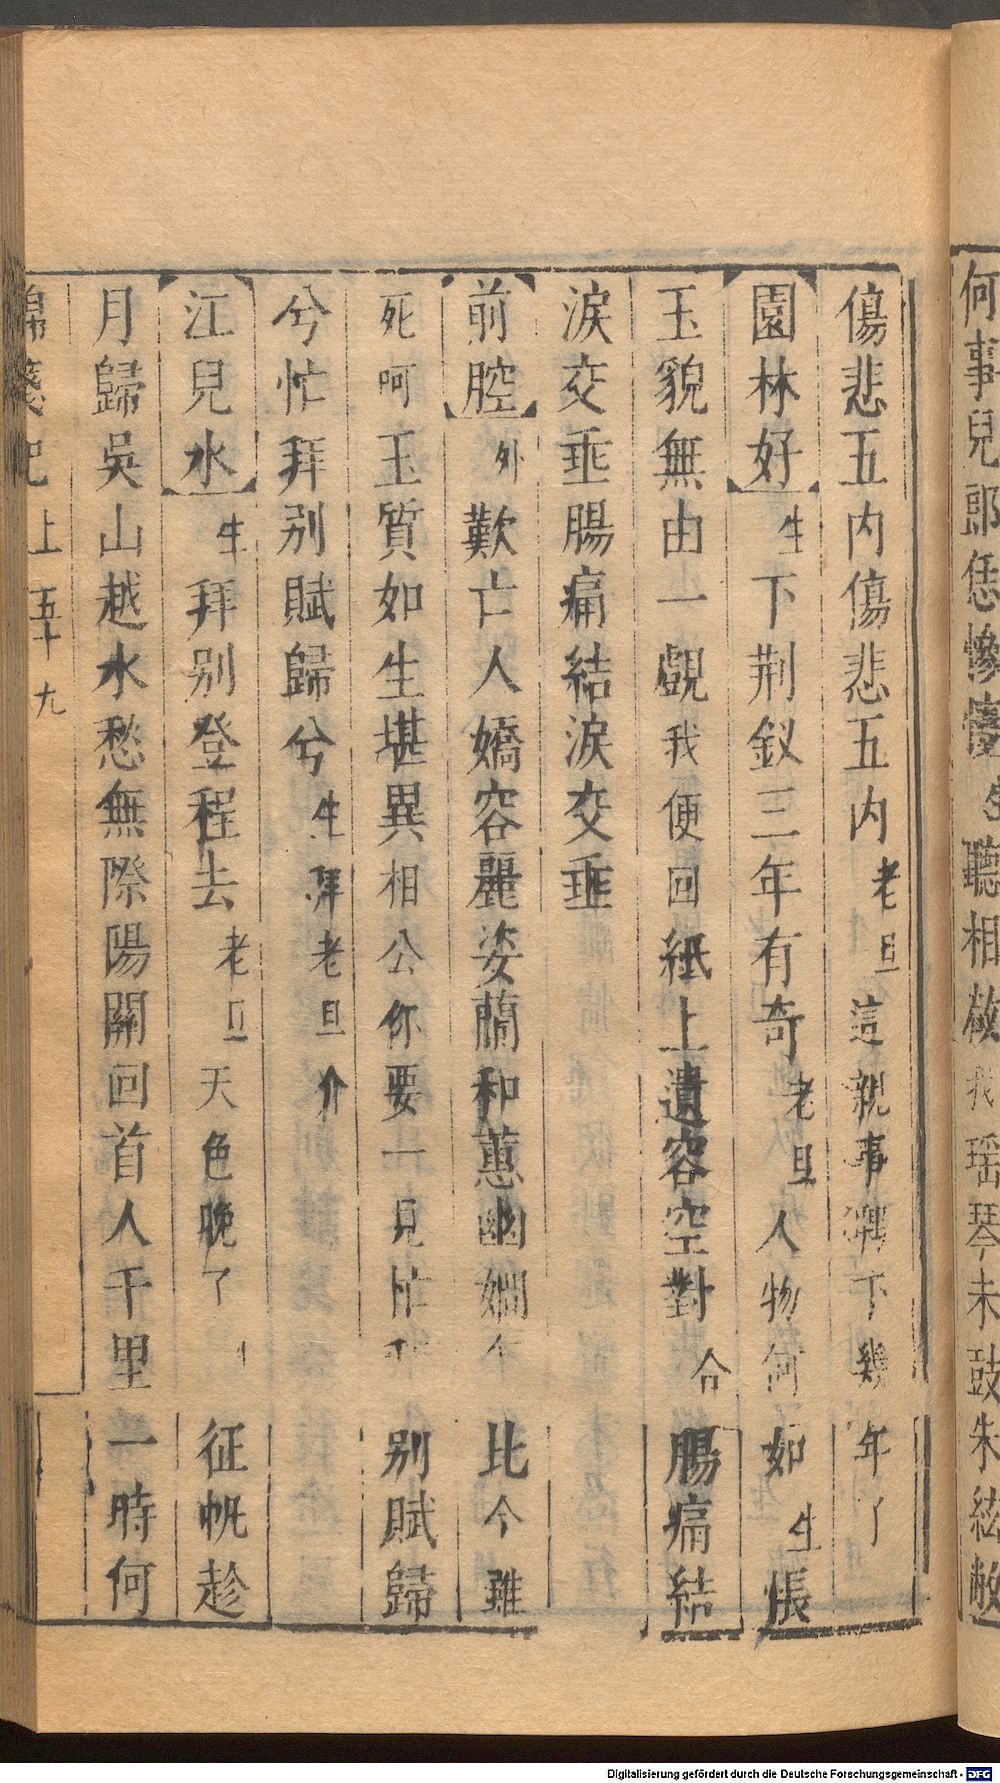 何事兒郎恁慘悽生聽相敵我瑶琴未鼓朱絃敝
傷悲五内傷悲五内老旦這親事下幾年了
園林好生下荆釵三年有奇老旦人物何如生悵
玉貌無由一覷我便回紙上遺容空對合腸痛結
淚交垂腸痛結淚交垂
前腔外歎亡人嬌容麗姿蘭和蕙幽嫺比今雖
死呵玉質如生堪異相公你要一見忙别賦歸
兮忙拜别賦歸兮生拜老旦介
江兒水生拜别登程去老旦天色晚了征帆趁
月歸吳山越水愁無際陽關回首人千里一時何
錦箋記上五十九
Digitalisierung gefördert durch die Deutsche Forschungsgemeinschaft - DFG